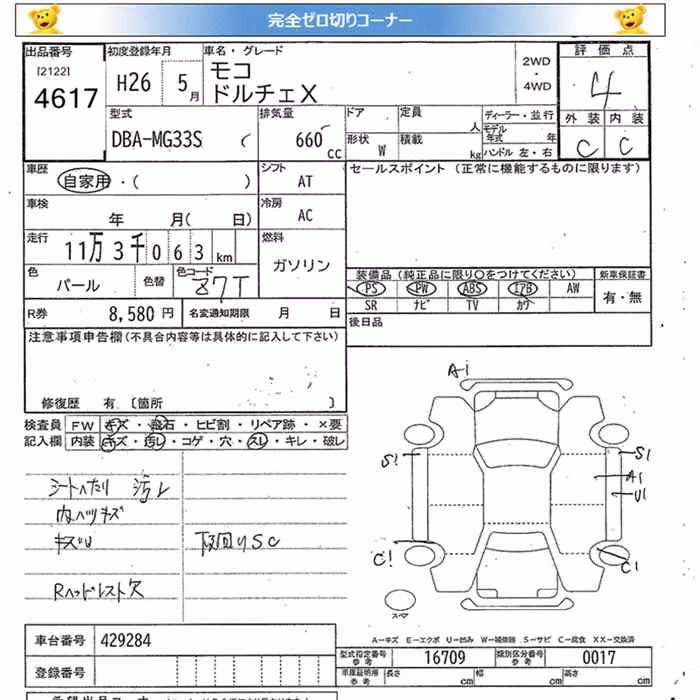 完全ゼロ切りコーナー
出品番号
[2122]
4617
初度登録年月
H26 5月
車名・グレード
モコ
ドルチェX
2WD
・
4WD
評価点
4
外装 内装
C C
型式
DBA-MG33S
排気量
660 cc
ドア
定員
人
形状
W
積載
kg
ディーラー・並行
モデル年式 年
ハンドル 左・右
車歴
自家用・( )
シフト
AT
セールスポイント (正常に機能するものに限ります)
車検
年 月( 日)
冷房
AC
走行
11万3千063km
燃料
ガソリン
色
パール
色替
色コード
Z7T
装備品(純正品に限り○をつけてください)
新車保証書
PS PW ABS エアB AW
SR ナビ TV カワ
有・無
R券 8,580円
名変通知期限 月 日
後日品
注意事項申告欄(不具合内容等は具体的に記入して下さい)
修復歴 有〔箇所 〕
検査員
記入欄
FW キズ・飛石・ヒビ割・リペア跡・×要
内装 キズ・汚レ・コゲ・穴・スレ・キレ・破レ
シートヘタリ 汚レ
内ハリキズ
下回りSC
Rヘッドレスト欠
A1
S1
S1
A1
U1
C1
C1
スペア
A-キズ E-エクボ U-凹み W-補修跡 S-サビ C-腐食 XX-交換済
車台番号 429284
登録番号
型式指定番号
参考
16709
類別区分番号
参考
0017
車庫証明用
参考
長さ cm
幅 cm
高さ cm